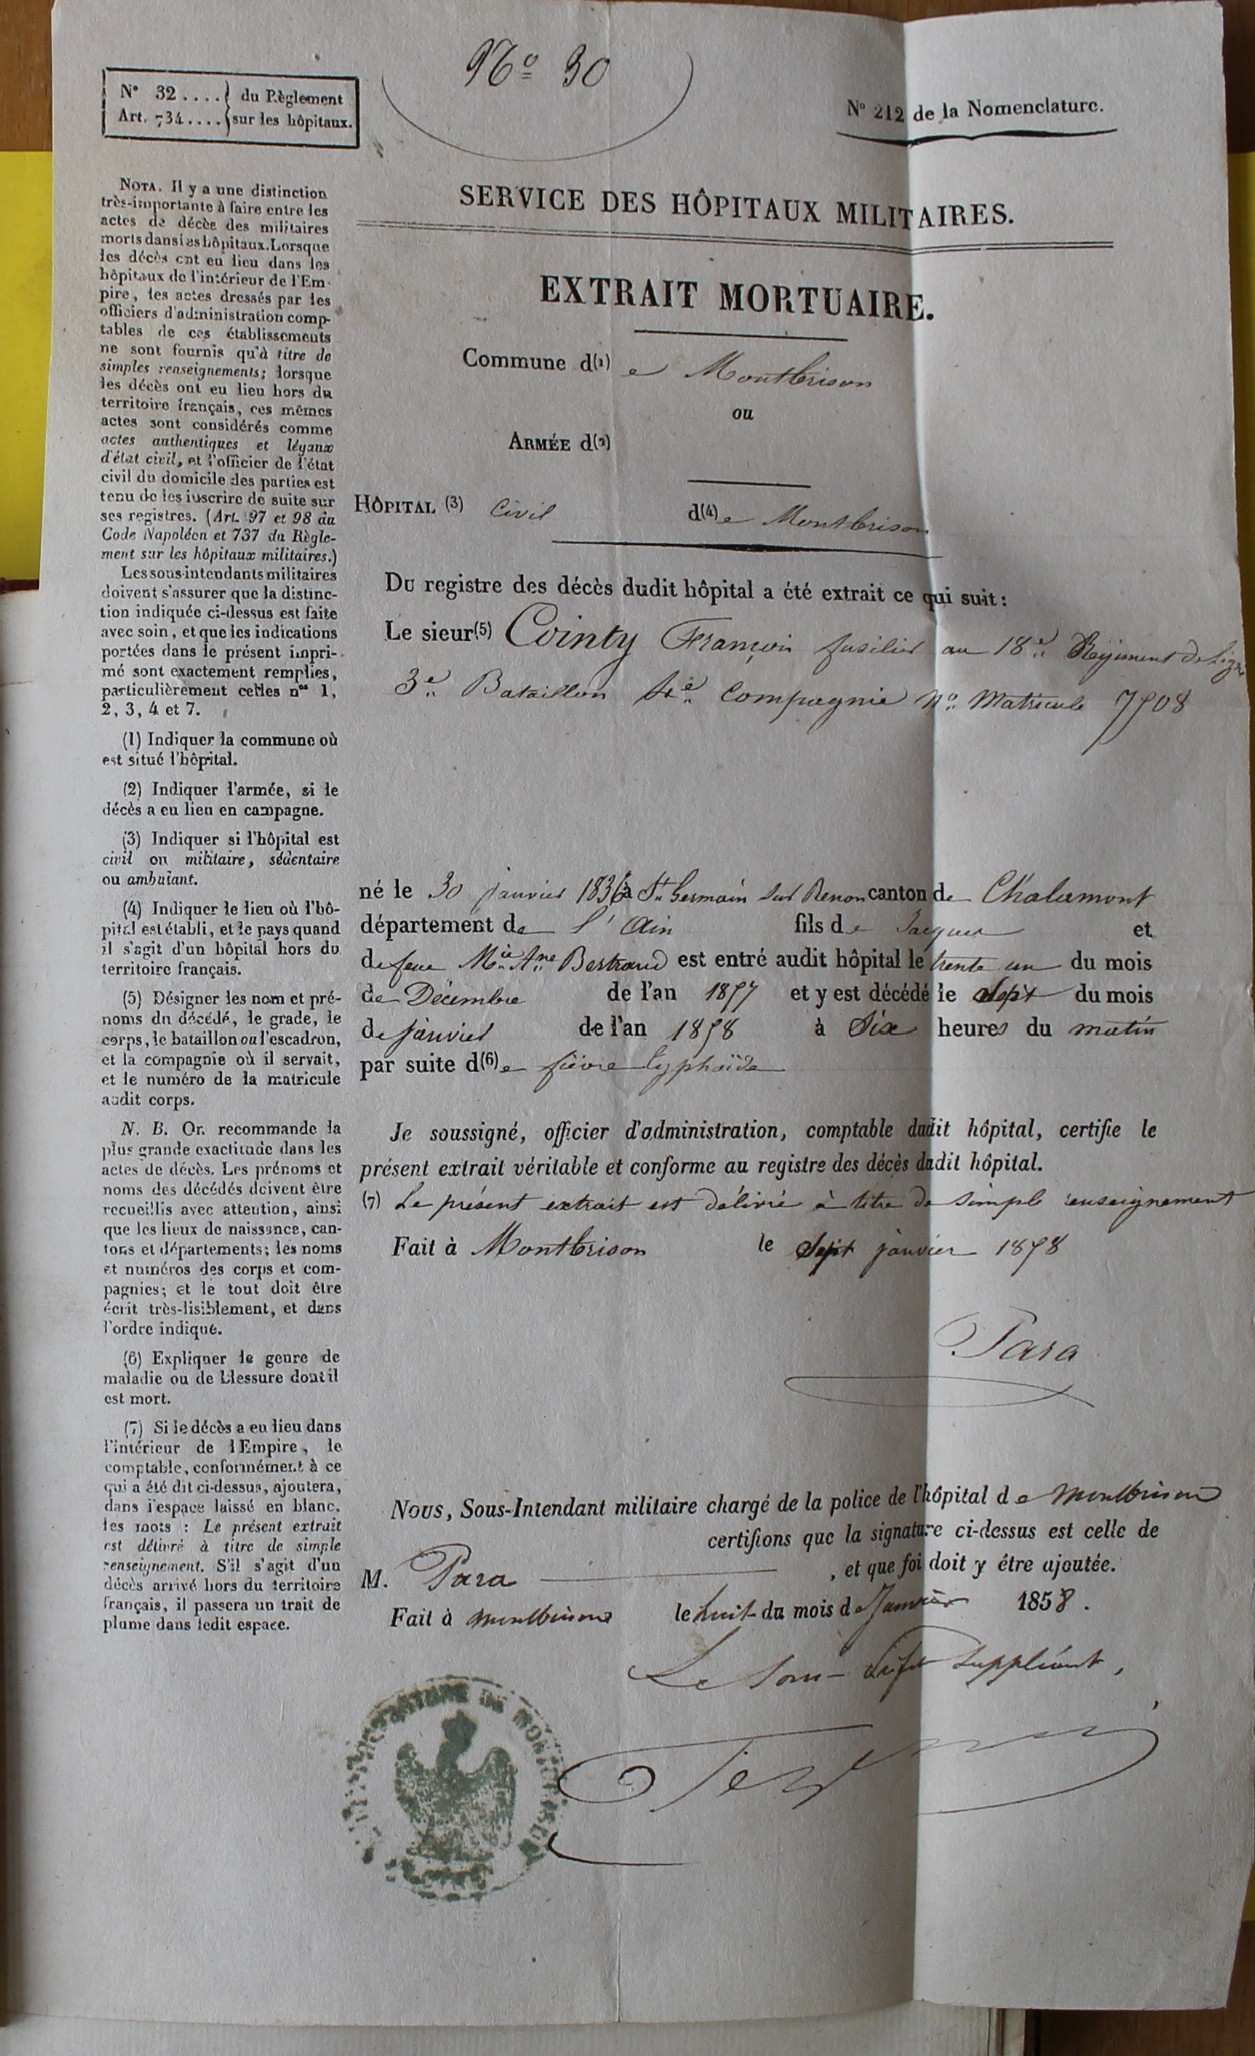 N° 30
N° 32 .... du Règlement
Art. 734 .... sur les hôpitaux.
N° 212 de la Nomenclature.
SERVICE DES HÔPITAUX MILITAIRES.
EXTRAIT MORTUAIRE.
Commune d(1) e Montbrison
ou
ARMÉE d(2)
HÔPITAL (3) Civil d(4) e Montbrison
NOTA. Il y a une distinction
très-importante à faire entre les
actes de décès des militaires
morts dans les hôpitaux. Lorsque
les décès ont eu lieu dans les
hôpitaux de l'intérieur de l'Em-
pire, les actes dressés par les
officiers d'administration comp-
tables de ces établissements
ne sont fournis qu'à titre de
simples renseignements; lorsque
les décès ont eu lieu hors du
territoire français, ces mêmes
actes sont considérés comme
actes authentiques et légaux
d'état civil, et l'officier de l'état
civil du domicile des parties est
tenu de les inscrire de suite sur
ses registres. (Art. 97 et 98 du
Code Napoléon et 737 du Règle-
ment sur les hôpitaux militaires.)
Les sous-intendants militaires
doivent s'assurer que la distinc-
tion indiquée ci-dessus est faite
avec soin, et que les indications
portées dans le présent impri-
mé sont exactement remplies,
particulièrement celles nos 1,
2, 3, 4 et 7.
(1) Indiquer la commune où
est situé l'hôpital.
(2) Indiquer l'armée, si le
décès a eu lieu en campagne.
(3) Indiquer si l'hôpital est
civil ou militaire, sédentaire
ou ambulant.
(4) Indiquer le lieu où l'hô-
pital est établi, et le pays quand
il s'agit d'un hôpital hors du
territoire français.
(5) Désigner les nom et pré-
noms du décédé, le grade, le
corps, le bataillon ou l'escadron,
et la compagnie où il servait,
et le numéro de la matricule
audit corps.
N. B. On recommande la
plus grande exactitude dans les
actes de décès. Les prénoms et
noms des décédés doivent être
recueillis avec attention, ainsi
que les lieux de naissance, can-
tons et départements; les noms
et numéros des corps et com-
pagnies; et le tout doit être
écrit très-lisiblement, et dans
l'ordre indiqué.
(6) Expliquer le genre de
maladie ou de blessure dont il
est mort.
(7) Si le décès a eu lieu dans
l'intérieur de l'Empire, le
comptable, conformément à ce
qui a été dit ci-dessus, ajoutera,
dans l'espace laissé en blanc,
les mots : Le présent extrait
est délivré à titre de simple
renseignement. S'il s'agit d'un
décès arrivé hors du territoire
français, il passera un trait de
plume dans ledit espace.
DU registre des décès dudit hôpital a été extrait ce qui suit :
Le sieur (5) Cointy François fusilier au 18e Régiment de Ligne
3e Bataillon 4e Compagnie No Matricule 7508
né le 30 janvier 1836 à St Germain sur Renon canton de Chalamont
département de l'Ain fils de Jacques et
de feue Mie Ane Bertrand est entré audit hôpital le trente un du mois
de Décembre de l'an 1857 et y est décédé le sept du mois
de janvier de l'an 1858 à Six heures du matin
par suite d(6) e fièvre typhoïde
Je soussigné, officier d'administration, comptable dudit hôpital, certifie le
présent extrait véritable et conforme au registre des décès dudit hôpital.
(7) Le présent extrait est délivré à titre de simple renseignement
Fait à Montbrison le sept janvier 1858
Para
NOUS, Sous-Intendant militaire chargé de la police de l'hôpital de Montbrison
certifions que la signature ci-dessus est celle de
M. Para , et que foi doit y être ajoutée.
Fait à Montbrison le huit du mois de Janvier 1858.
Le Sous-Préfet Suppléant,
SOUS-PRÉFECTURE DE MONTBRISON